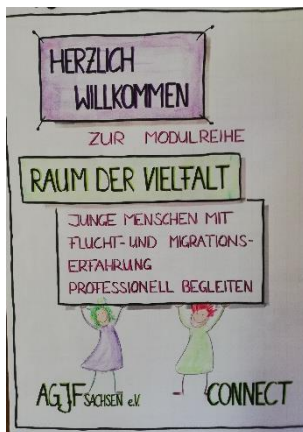 HERZLICH
WILLKOMMEN
ZUR MODULREIHE
RAUM DER VIELFALT
JUNGE MENSCHEN MIT
FLUCHT- UND MIGRATIONS-
ERFAHRUNG
PROFESSIONELL BEGLEITEN
AGJF SACHSEN e.V. CONNECT